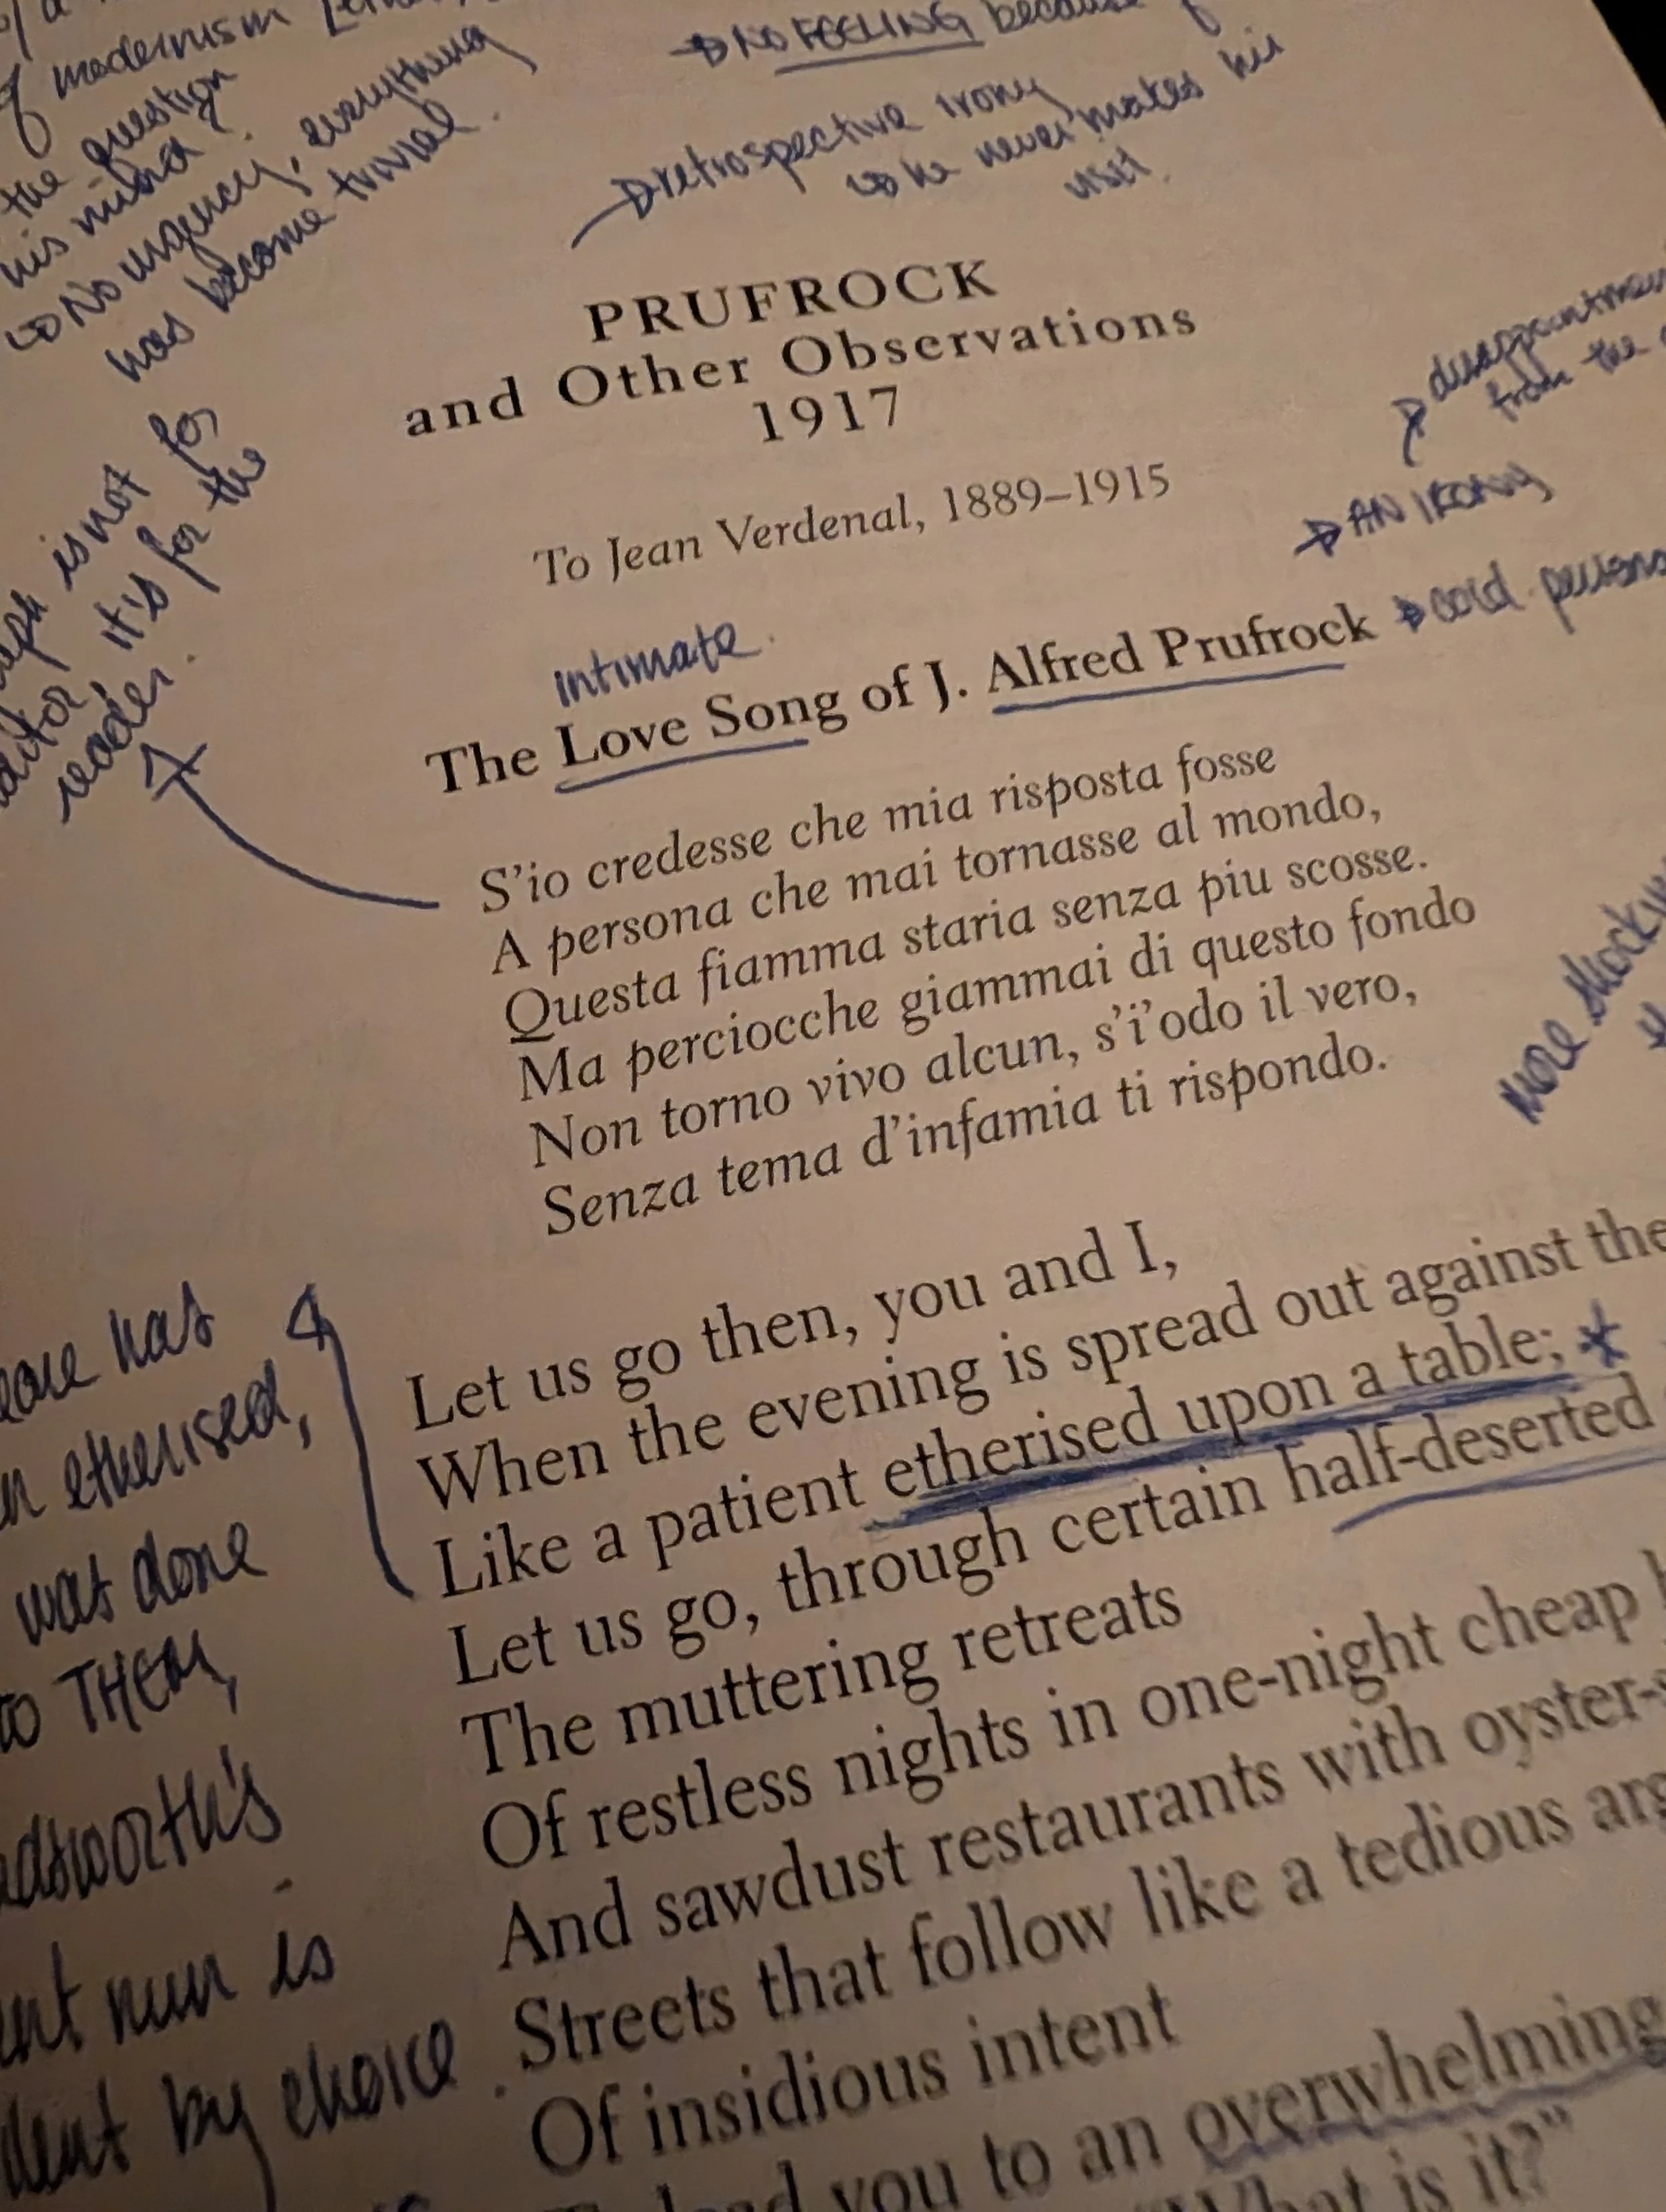 of modernism
the question
his mind?
No urgency, everything
has become trivial.
NO FEELING because
retrospective irony
he never makes his
visit.
PRUFROCK
and Other Observations
1917
To Jean Verdenal, 1889–1915
disappointment
from the
AN IRONY
cold
is not for
it's for the
reader.
intimate.
The Love Song of J. Alfred Prufrock
S'io credesse che mia risposta fosse
A persona che mai tornasse al mondo,
Questa fiamma staria senza piu scosse.
Ma perciocche giammai di questo fondo
Non torno vivo alcun, s'i'odo il vero,
Senza tema d'infamia ti rispondo.
MORE
Let us go then, you and I,
When the evening is spread out against the
Like a patient etherised upon a table;
Let us go, through certain half-deserted
The muttering retreats
Of restless nights in one-night cheap
And sawdust restaurants with oyster-
Streets that follow like a tedious
Of insidious intent
you to an overwhelming
is it?"
has
etherised,
was done
to THEM,
nun is
by choice.